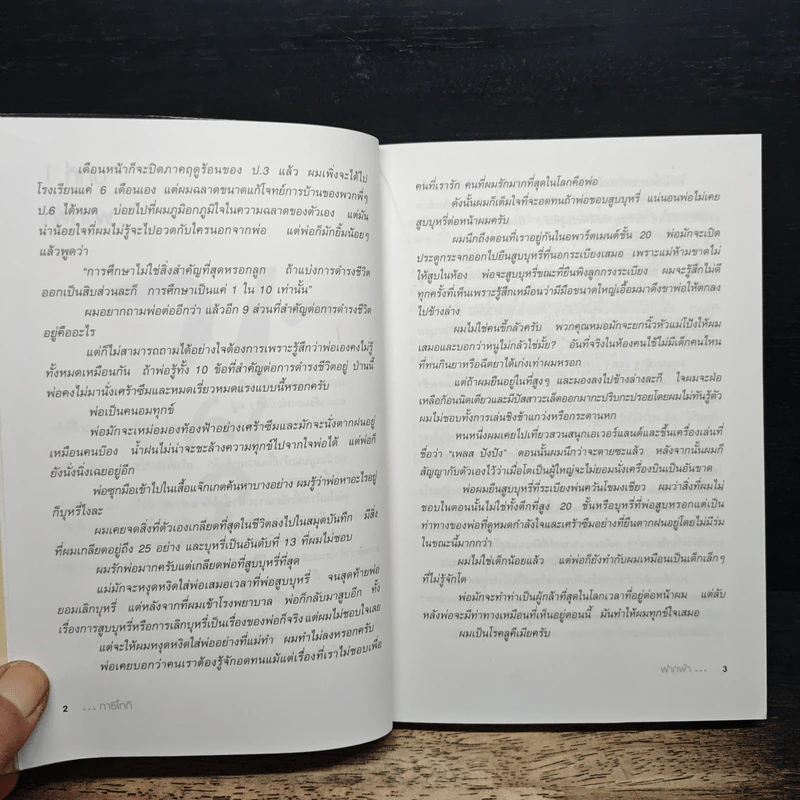 เดือนหน้าก็จะปิดภาคฤดูร้อนของ ป.3 แล้ว ผมเพิ่งจะได้ไป
โรงเรียนแค่ 6 เดือนเอง แต่ผมฉลาดขนาดแก้โจทย์การบ้านของพวกพี่ๆ
ป.6 ได้หมด บ่อยไปที่ผมภูมิอกภูมิใจในความฉลาดของตัวเอง แต่มัน
น่าน้อยใจที่ผมไม่รู้จะไปอวดกับใครนอกจากพ่อ แต่พ่อก็มักยิ้มน้อยๆ
แล้วพูดว่า
"การศึกษาไม่ใช่สิ่งสำคัญที่สุดหรอกลูก ถ้าแบ่งการดำรงชีวิต
ออกเป็นสิบส่วนละก็ การศึกษาเป็นแค่ 1 ใน 10 เท่านั้น"
ผมอยากถามพ่อต่ออีกว่า แล้วอีก 9 ส่วนที่สำคัญต่อการดำรงชีวิต
อยู่คืออะไร
แต่ก็ไม่สามารถถามได้อย่างใจต้องการเพราะรู้สึกว่าพ่อเองคงไม่รู้
ทั้งหมดเหมือนกัน ถ้าพ่อรู้ทั้ง 10 ข้อที่สำคัญต่อการดำรงชีวิตอยู่ ป่านนี้
พ่อคงไม่มานั่งเศร้าซึมและหมดเรี่ยวหมดแรงแบบนี้หรอกครับ
พ่อเป็นคนอมทุกข์
พ่อมักจะเหม่อมองท้องฟ้าอย่างเศร้าซึมและมักจะนั่งตากฝนอยู่
เหมือนคนบ๊อง น้ำฝนไม่น่าจะชะล้างความทุกข์ไปจากใจพ่อได้ แต่พ่อก็
ยังนั่งนิ่งเฉยอยู่อีก
พ่อซุกมือเข้าไปในเสื้อแจ๊กเกตค้นหาบางอย่าง ผมรู้ว่าพ่อหาอะไรอยู่
ก็บุหรี่ไงละ
ผมเคยจดสิ่งที่ตัวเองเกลียดที่สุดในชีวิตลงไปในสมุดบันทึก มีสิ่ง
ที่ผมเกลียดอยู่ถึง 25 อย่าง และบุหรี่เป็นอันดับที่ 13 ที่ผมไม่ชอบ
ผมรักพ่อมากแต่เกลียดพ่อที่สูบบุหรี่ที่สุด
แม่มักจะหงุดหงิดใส่พ่อเสมอเวลาที่พ่อสูบบุหรี่ จนสุดท้ายพ่อ
ยอมเลิกบุหรี่ แต่หลังจากที่ผมเข้าโรงพยาบาล พ่อก็กลับมาสูบอีก ทั้ง
เรื่องการสูบบุหรี่หรือการเลิกบุหรี่เป็นเรื่องของพ่อก็จริง แต่ผมไม่ชอบใจเลย
แต่จะให้ผมหงุดหงิดใส่พ่ออย่างที่แม่ทำ ผมทำไม่ลงหรอกครับ
พ่อเคยบอกว่าคนเราต้องรู้จักอดทนแม้แต่เรื่องที่เราไม่ชอบเพื่อ
2 ... กาชิโกกิ
คนที่เรารัก คนที่ผมรักมากที่สุดในโลกคือพ่อ
ดังนั้นผมก็เต็มใจที่จะอดทนถ้าพ่อชอบสูบบุหรี่ แน่นอนพ่อไม่เคย
สูบบุหรี่ต่อหน้าผมครับ
ผมนึกถึงตอนที่เราอยู่กันในอพาร์ตเมนต์ชั้น 20 พ่อมักจะเปิด
ประตูกระจกออกไปยืนสูบบุหรี่ที่นอกระเบียงเสมอ เพราะแม่ห้ามขาดไม่
ให้สูบในห้อง พ่อจะสูบบุหรี่ขณะที่ยืนพิงลูกกรงระเบียง ผมจะรู้สึกไม่ดี
ทุกครั้งที่เห็นเพราะรู้สึกเหมือนว่ามีมือขนาดใหญ่เอื้อมมาดึงขาพ่อให้ตกลง
ไปข้างล่าง
ผมไม่ใช่คนขี้กลัวครับ พวกคุณหมอมักจะยกนิ้วหัวแม่โป้งให้ผม
เสมอและบอกว่าหนูไม่กลัวใช่มั้ย? อันที่จริงในห้องคนไข้ไม่มีเด็กคนไหน
ที่ทนกินยาหรือฉีดยาได้เก่งเท่าผมหรอก
แต่ถ้าผมยืนอยู่ในที่สูงๆ และมองลงไปข้างล่างละก็ ใจผมจะฝ่อ
เหลือก้อนนิดเดียวและมีปัสสาวะเล็ดออกมากะปริบกะปรอยโดยผมไม่ทันรู้ตัว
ผมไม่ชอบทั้งการเล่นชิงช้าแกว่งหรือกระดานหก
หนหนึ่งผมเคยไปเที่ยวสวนสนุกเอเวอร์แลนด์และขึ้นเครื่องเล่นที่
ชื่อว่า "เพลส ปังปัง" ตอนนั้นผมนึกว่าจะตายซะแล้ว หลังจากนั้นผมก็
สัญญากับตัวเองไว้ว่าเมื่อโตเป็นผู้ใหญ่จะไม่ยอมนั่งเครื่องบินเป็นอันขาด
พ่อผมยืนสูบบุหรี่ที่ระเบียงพ่นควันโขมงเชียว ผมว่าสิ่งที่ผมไม่
ชอบในตอนนั้นไม่ใช่ทั้งตึกที่สูง 20 ชั้นหรือบุหรี่ที่พ่อสูบหรอกแต่เป็น
ท่าทางของพ่อที่ดูหมดกำลังใจและเศร้าซึมอย่างที่ยืนตากฝนอยู่โดยไม่มีร่ม
ในขณะนี้มากกว่า
ผมไม่ใช่เด็กน้อยแล้ว แต่พ่อก็ยังทำกับผมเหมือนเป็นเด็กเล็กๆ
ที่ไม่รู้จักโต
พ่อมักจะทำท่าเป็นผู้กล้าที่สุดในโลกเวลาที่อยู่ต่อหน้าผม แต่ลับ
หลังพ่อจะมีท่าทางเหมือนที่เห็นอยู่ตอนนี้ มันทำให้ผมทุกข์ใจเสมอ
ผมเป็นโรคลูคีเมียครับ
ฟากฟ้า ... 3